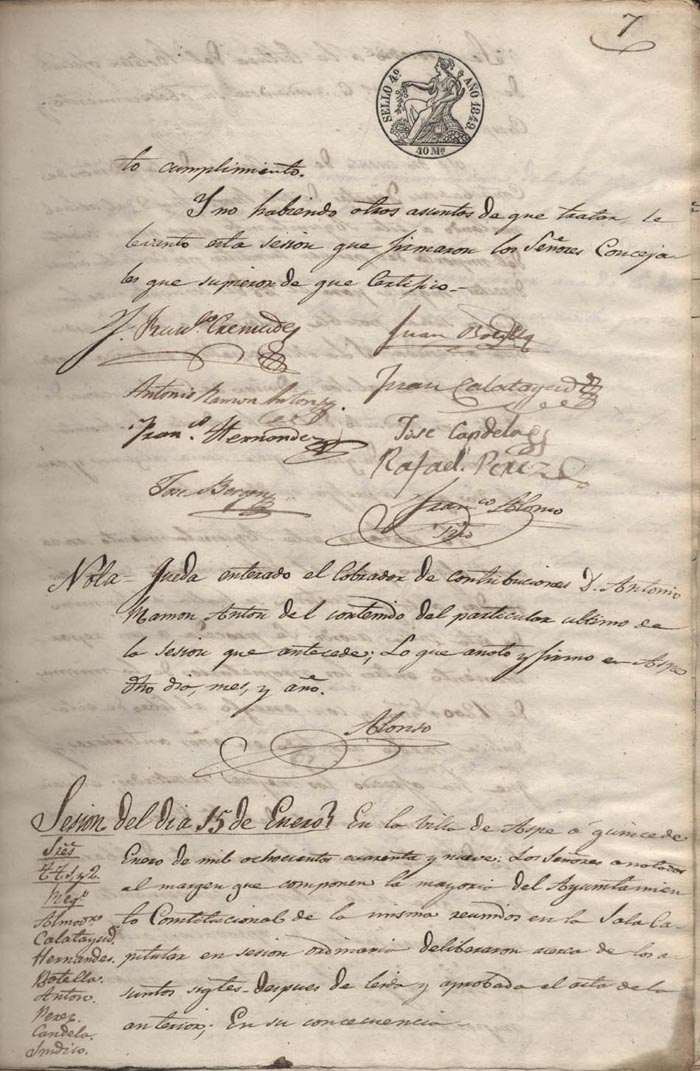 7
SELLO 4º AÑO 1849.
40 Ms
to cumplimiento.
Y no habiendo otros asuntos de que tratar se
levanto esta sesion que firmaron los Señores Conceja
les que supieron de que Certifico.-
Juan Botella
Antonio Ramon Anton
Juan Calatayud
Franco Hernandez
Jose Candela
Rafael Perez
Franco Alonso
Nota - Queda enterado el Cobrador de Contribuciones D. Antonio
Ramon Anton del contenido del particular ultimo de
la sesion que antecede; Lo que anoto y firmo en Aspe
dho dia, mes, y año.
Alonso
Sesion del dia 15 de Enero
En la Villa de Aspe á quince de
Enero de mil ochocientos cuarenta y nueve: Los Señores anotados
al margen que componen la mayoria del Ayuntamien
to Constitucional de la misma reunidos en la Sala Ca
pitular en sesion ordinaria deliberaron acerca de los a
suntos sigtes. despues de leida y aprobada el acta de la
anterior; En su concecuencia
Sres
Calatayud.
Hernandes.
Botella.
Anton.
Perez.
Candela.
Sindico.